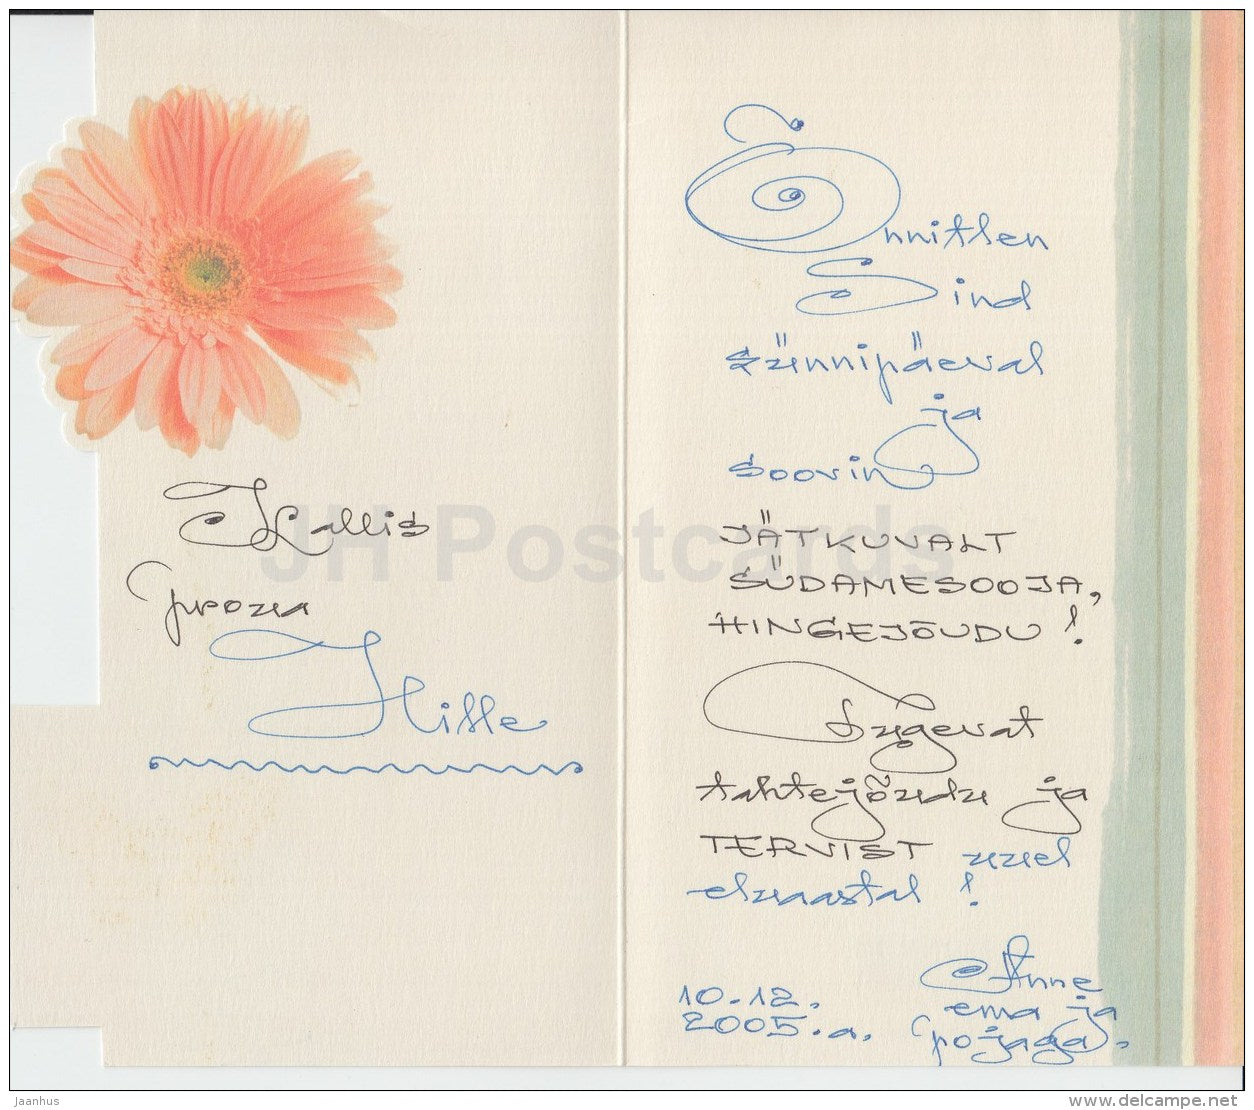 Kallis
proua
Hille
Õnnitlen
Sind
sünnipäeval
ja
soovin
JÄTKUVALT
SÜDAMESOOJA,
HINGEJÕUDU !
Tugevat
tahtejõudu ja
TERVIST uuel
eluaastal !
10.12.
2005.a.
Anne
ema ja
pojaga.
JH Postcards
Jaanhus
www.delcampe.net